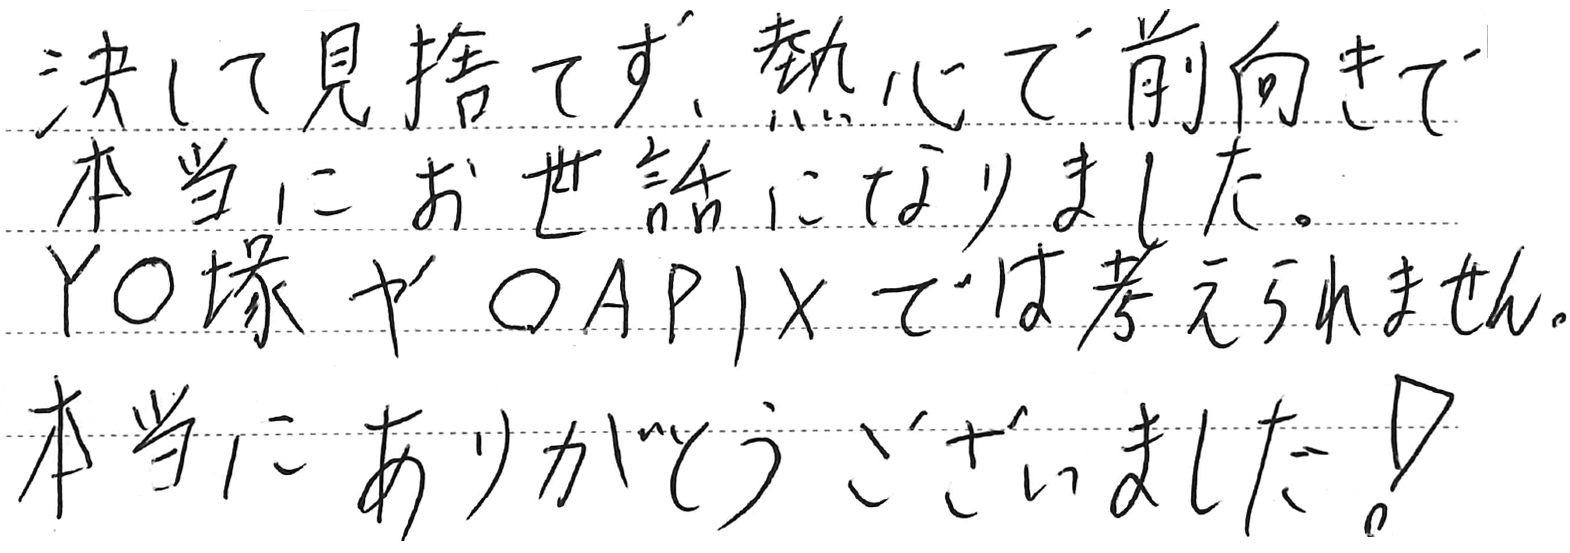 決して見捨てず、熱心で前向きで
本当にお世話になりました。
Y〇塚や〇APIXでは考えられません。
本当にありがとうございました!